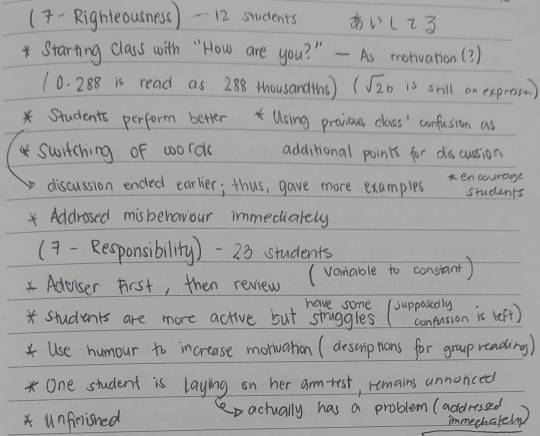 (7 - Righteousness) - 12 students あいしてる
* Starting class with "How are you?" - As motivation (?)
(0.288 is read as 288 thousandths) (√26 is still an expression)
* Students perform better * Using previous class' confusion as
* Switching of words additional points for discussion
discussion ended earlier; thus, gave more examples * encourage students
* Addressed misbehaviour immediately
(7 - Responsibility) - 23 students
* Adviser First, then review (variable to constant)
* Students are more active but have some struggles (supposedly confusion is left)
* Use humour to increase motivation (descriptions for group reading)
* One student is laying on her arm-rest, remains unnoticed
actually has a problem (addressed immediately)
* Unfinished